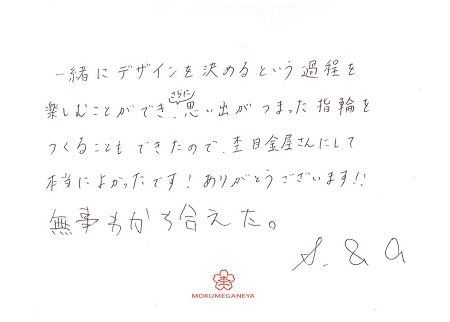 一緒にデザインを決めるという過程を
楽しむことができ、さらに思い出がつまった指輪を
つくることもできたので、杢目金屋さんにして
本当によかったです！ありがとうございます!!
無事わかち合えた。
S. & A
MOKUMEGANEYA